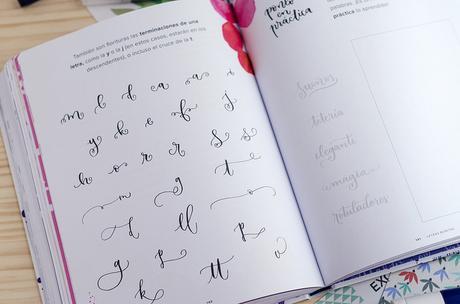 También son florituras las terminaciones de una
letra, como la y o la j (en estos casos, estarán en los
descendentes), o incluso el cruce de la t.
m l d e a
y k o f j
h o r s s
m g t
d ll r
g t
k
ponlo
en
práctica
palabras.
práctica lo aprendido!
Sueños
lotería
elegante
magia
rotuladores